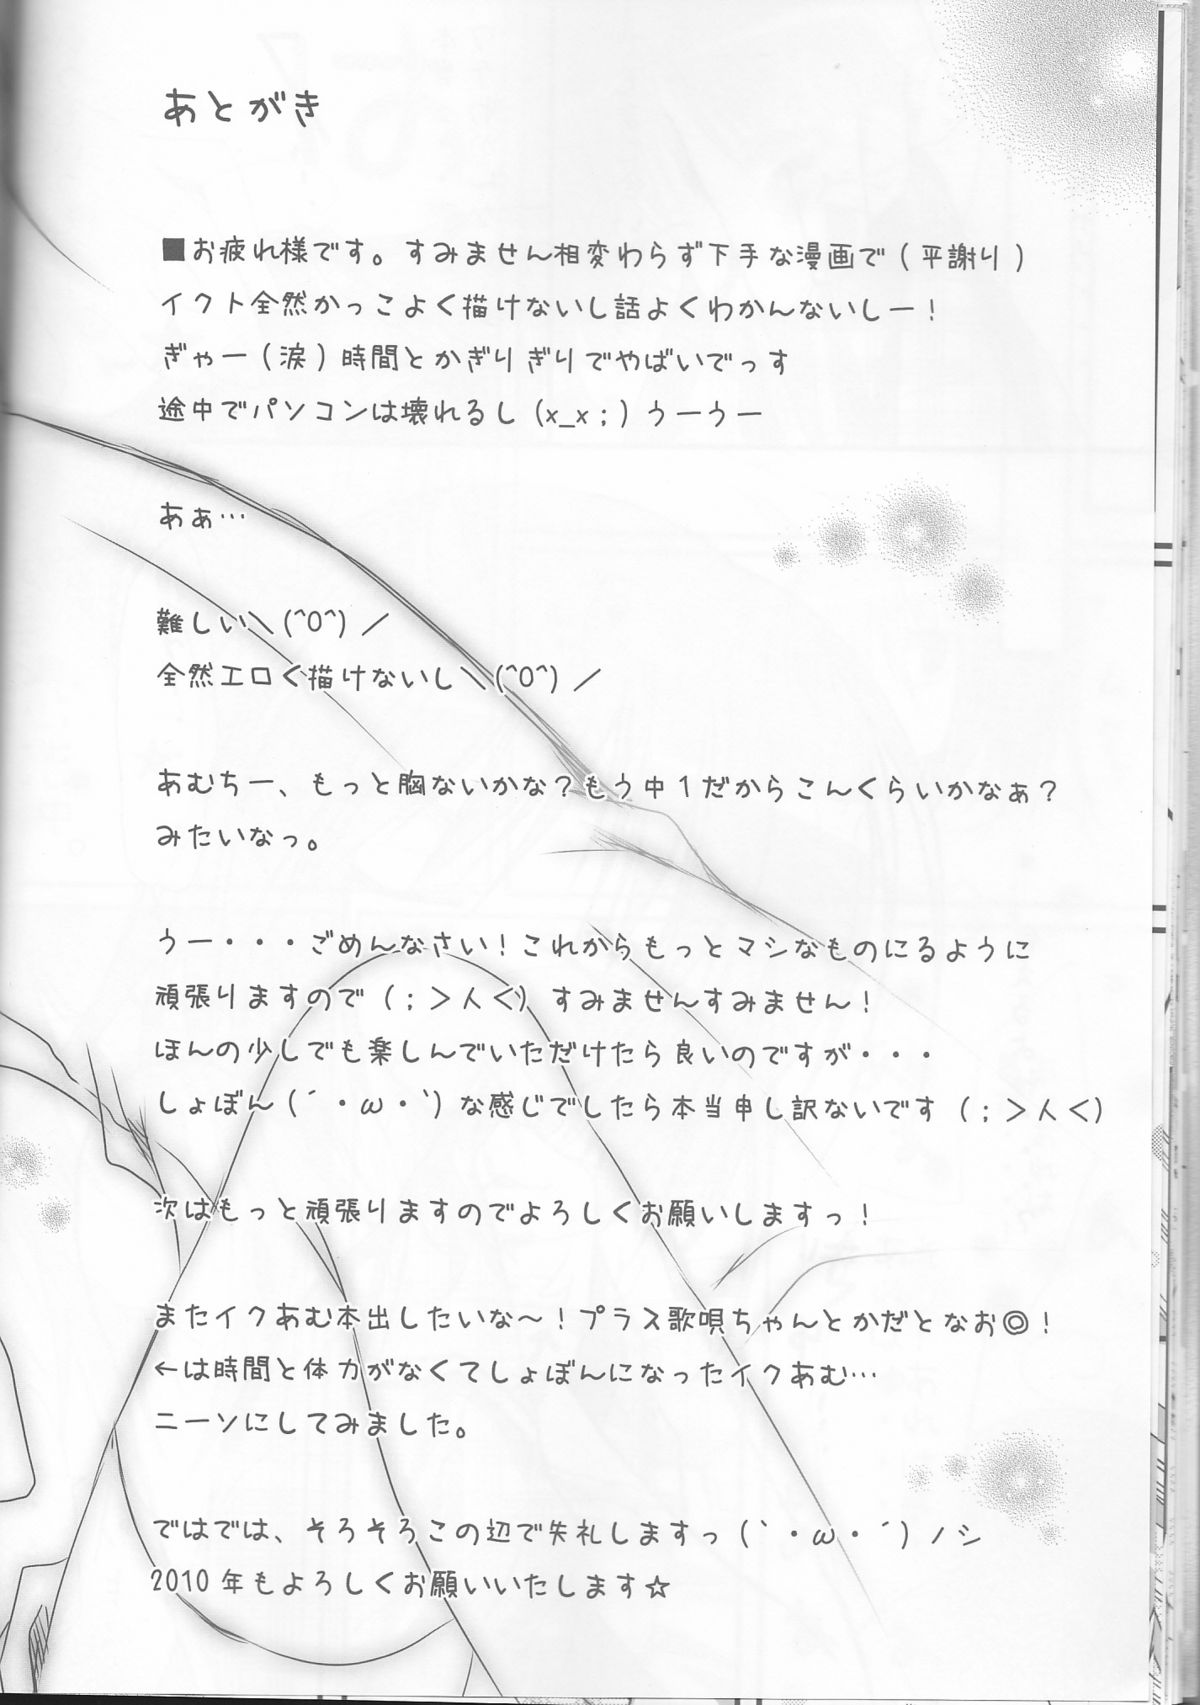 あとがき
■お疲れ様です。すみません相変わらず下手な漫画で(平謝り)
イクト全然かっこよく描けないし話よくわかんないしー!
ぎゃー(涙)時間とかぎりぎりでやばいでっす
途中でパソコンは壊れるし(x_x;)うーうー
あぁ…
難しい＼(^O^)／
全然エロく描けないし＼(^O^)／
あむちー、もっと胸ないかな?もう中1だからこんくらいかなぁ?
みたいなっ。
うー・・・ごめんなさい!これからもっとマシなものにるように
頑張りますので(;＞人＜)すみませんすみません!
ほんの少しでも楽しんでいただけたら良いのですが・・・
しょぼん(´・ω・`)な感じでしたら本当申し訳ないです(;＞人＜)
次はもっと頑張りますのでよろしくお願いしますっ!
またイクあむ本出したいな～!プラス歌唄ちゃんとかだとなお◎!
←は時間と体力がなくてしょぼんになったイクあむ…
ニーソにしてみました。
ではでは、そろそろこの辺で失礼しますっ(`・ω・´)ノシ
2010年もよろしくお願いいたします☆